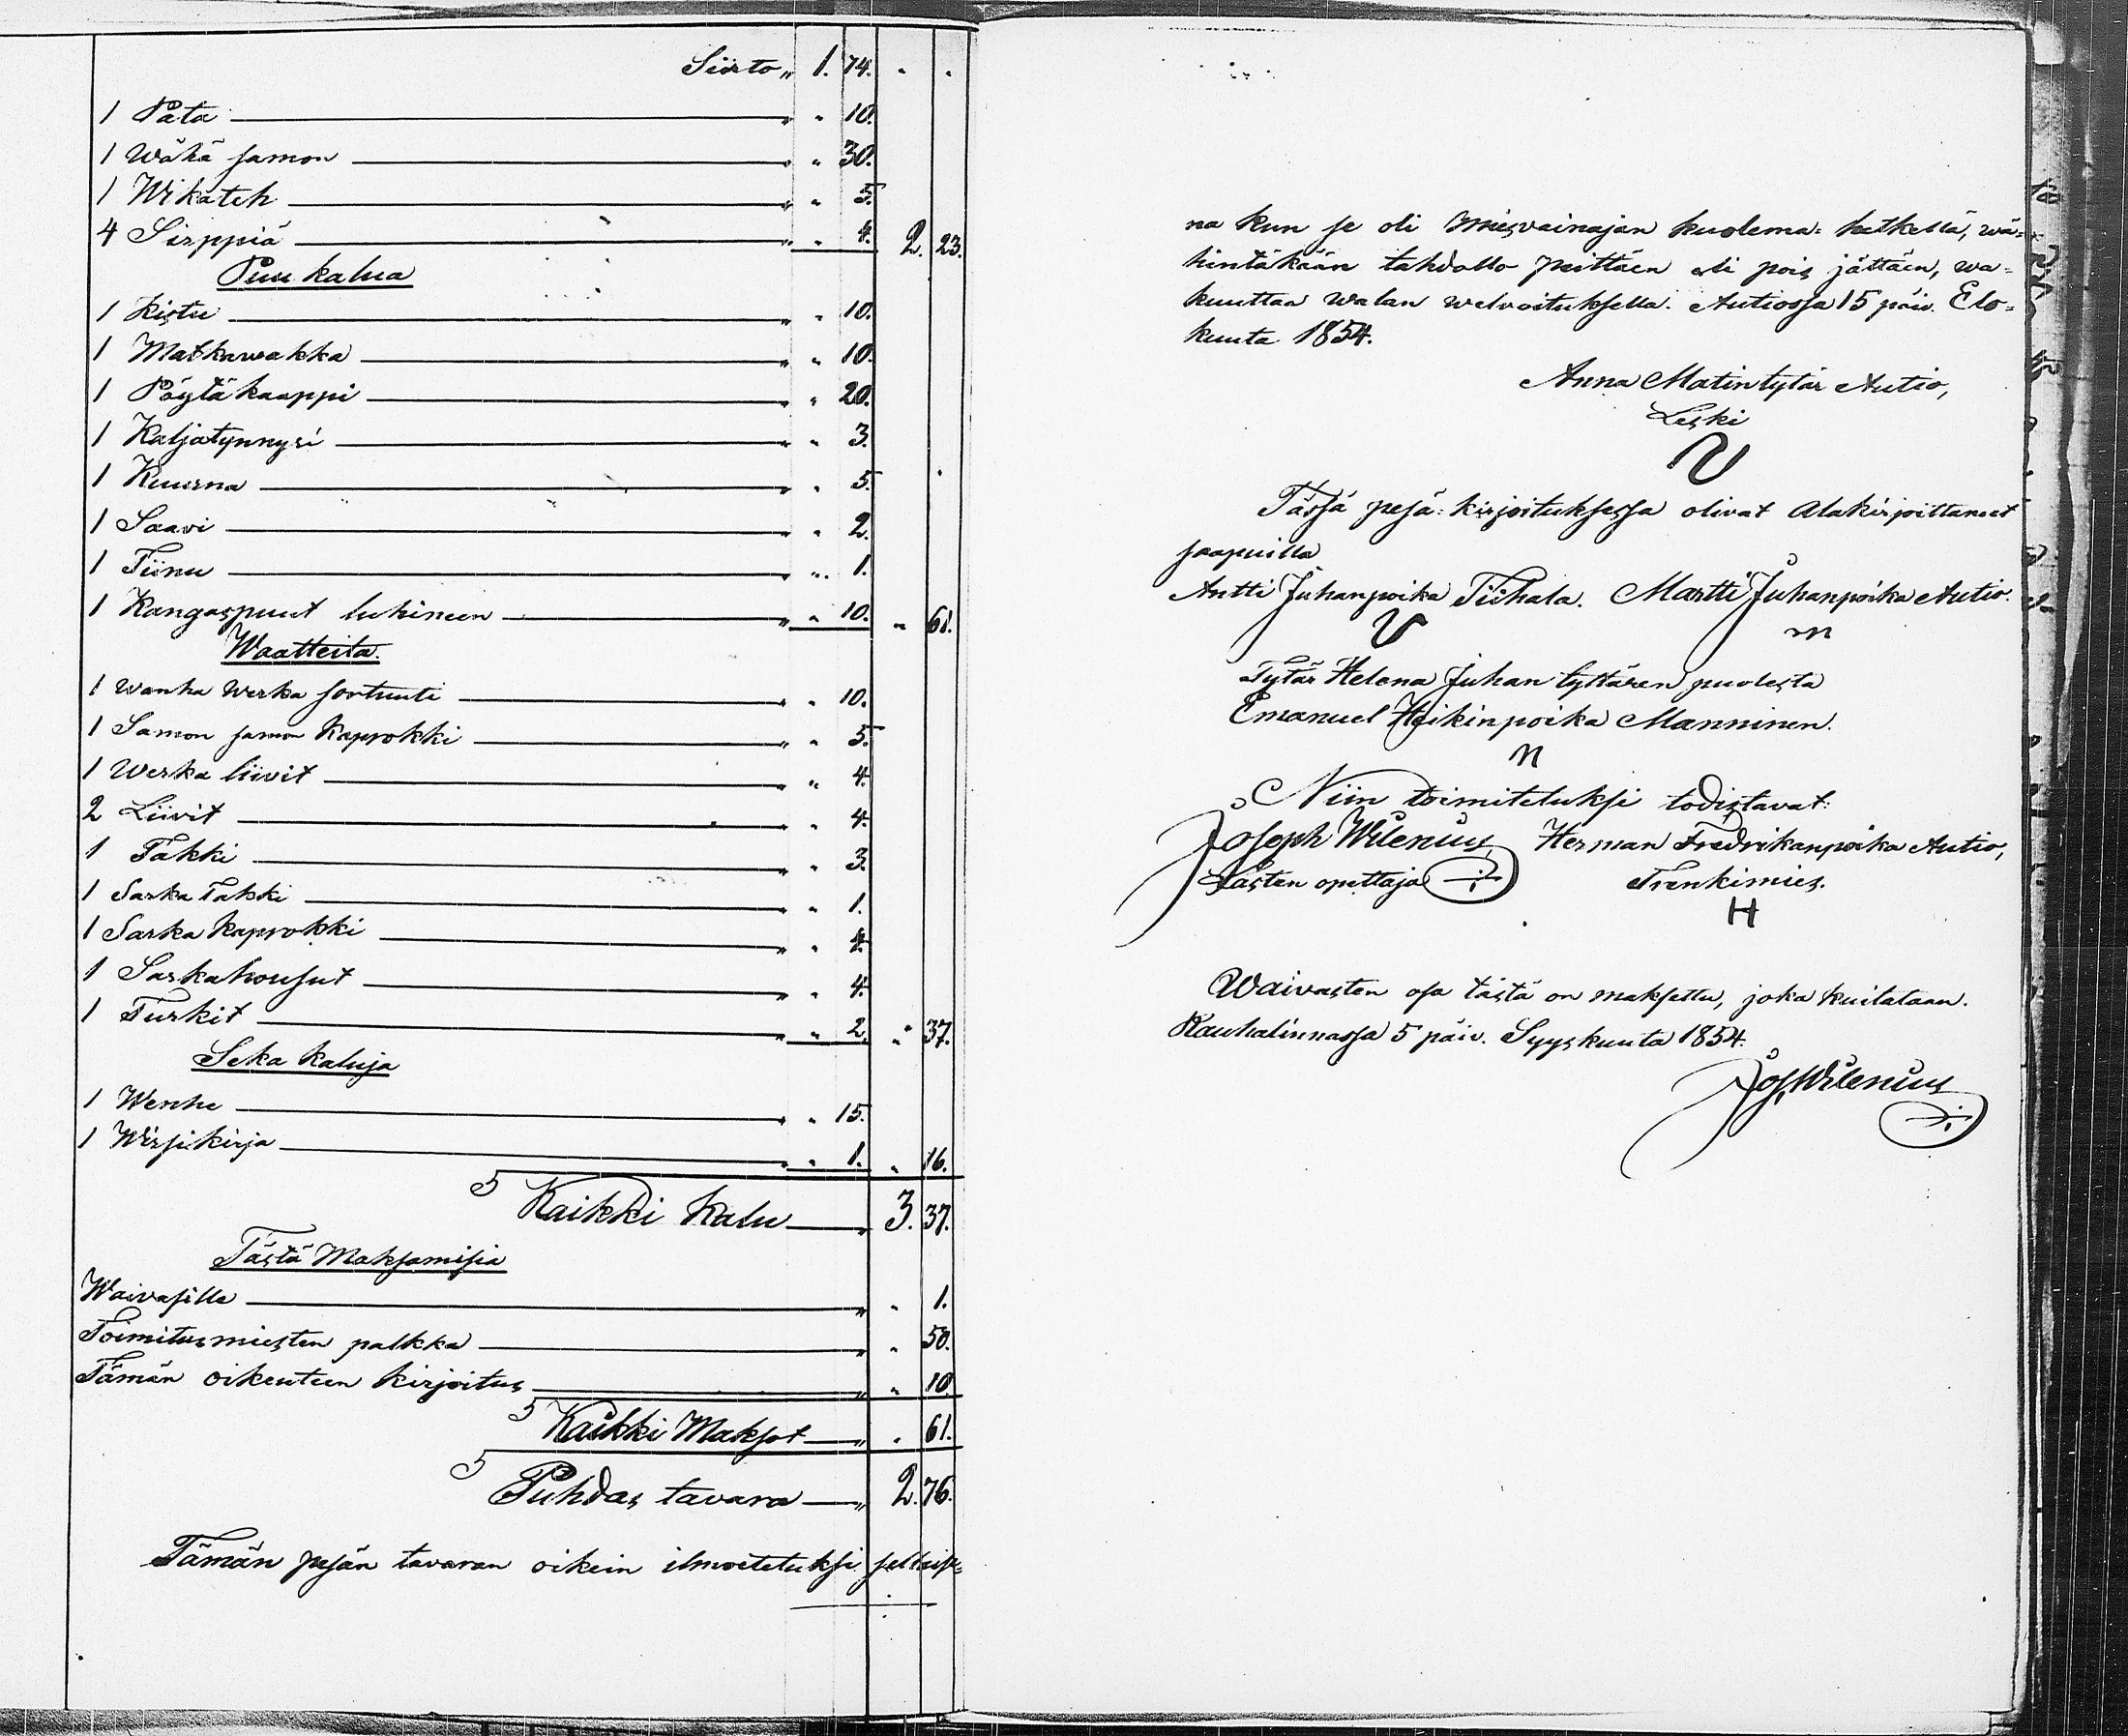 Siirto „ 1. 74. . .
1 Pata „ „ 10.
1 Wähä samon „ „ 30.
1 Wikateh „ „ 5.
4 Sirppiä „ „ 4. 2. 23.
Puu kalua
1 Kistu „ „ 10.
1 Matkawakka „ „ 10.
1 Pöytä kaappi „ „ 20.
1 Kaljatynnyri „ „ 3.
1 Kuurna „ „ 5.
1 Saavi „ „ 2.
1 Tiinu „ „ 1.
1 Kangaspuut luhineen „ „ 10. „ 61.
Waatteita.
1 wanha Werka sortuuti „ „ 10.
1 Samon samon Kaprokki „ „ 5.
1 Werka liivit „ „ 4.
2 Liivit „ „ 4.
1 Takki „ „ 3.
1 Sarka Takki „ „ 1.
1 Sarka Kaprokki „ „ 4.
1 Sarkahousut „ „ 4.
1 Turkit „ „ 2. „ 37.
Seka kaluja
1 Wenhe „ „ 15.
1 Wirsikirja „ „ 1. „ 16.
Kaikki Kalu „ 3. 37.
Tästä Maksamisia
Waivasille „ „ 1.
Toimitusmiesten palkka „ „ 50.
Tämän oikeuteen kirjoitus „ „ 10.
Kaikki Maksot „ „ 61.
Puhdas tavara „ 2. 76.
Tämän pesän tavaran oikein ilmoitetuksi sellaise=
na kun se oli Miesvainajan kuolema= hetkellä, wä=
hintäkään tahdollo peittäen eli pois jättäen, wa=
kuuttaa walan welvoituksella. Autiossa 15 päiv. Elo=
kuuta 1854.
Anna Matintytär Autio,
Leski
Tässä pesä= kirjoituksessa olivat Alakirjoittaneet
saapuilla
Antti Juhanpoika Tiihala. Martti Juhanpoika Autio.
m
Tytär Helena Juhan tyttären puolesta
Emanuel Heikinpoika Manninen.
n
Niin toimitetuksi todistavat:
Joseph Wilenius, Herman Fredrikanpoika Autio,
Lasten opettaja Trenkimies.
H
Waivasten osa tästä on maksettu, joka kuitataan.
Rauhalinnassa 5 päiv. Syyskuuta 1854.
Jos. Wilenius